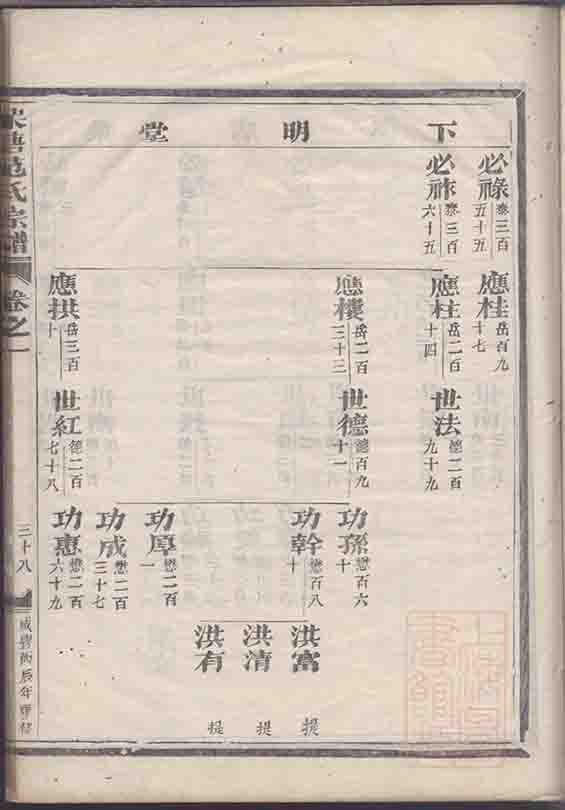 下明堂
必祿 泰三百五十五
必祚 泰三百六十五
應桂 岳百九十七
應柱 岳二百十四
應樓 岳二百三十三
應拱 岳三百十
世法 德二百九十九
世德 德百九十一
世紅 德二百七十八
功孫 懋百六十
功幹 懋百八十
功厚 懋二百一
功成 懋二百三十七
功惠 懋二百六十九
洪富 提
洪清 提
洪有 提
范氏宗譜
卷之一
三十八
咸豐丙辰年重修